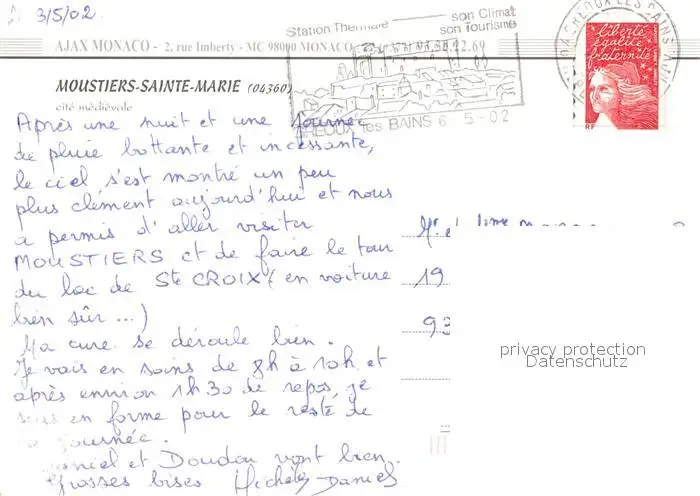 3/5/02
Station Thermale son Climat
son Tourisme
AJAX MONACO - 2, rue Imberty - MC 98000 MONACO
MOUSTIERS-SAINTE-MARIE (04360)
cité médiévale
GREOUX les BAINS 6-5-02
liberté
égalité
fraternité
RF
Après une nuit et une journée
de pluie battante et incessante,
le ciel s'est montré un peu
plus clément aujourd'hui et nous
a permis d'aller visiter
MOUSTIERS et de faire le tour
du lac de Ste CROIX (en voiture
bien sûr ...)
Ma cure se déroule bien.
Je vais en soins de 8h à 10h et
après environ 1h30 de repos, je
suis en forme pour le reste de
la journée.
Daniel et Doudou vont bien.
Grosses bises Michèle Daniel
19
93
privacy protection
Datenschutz